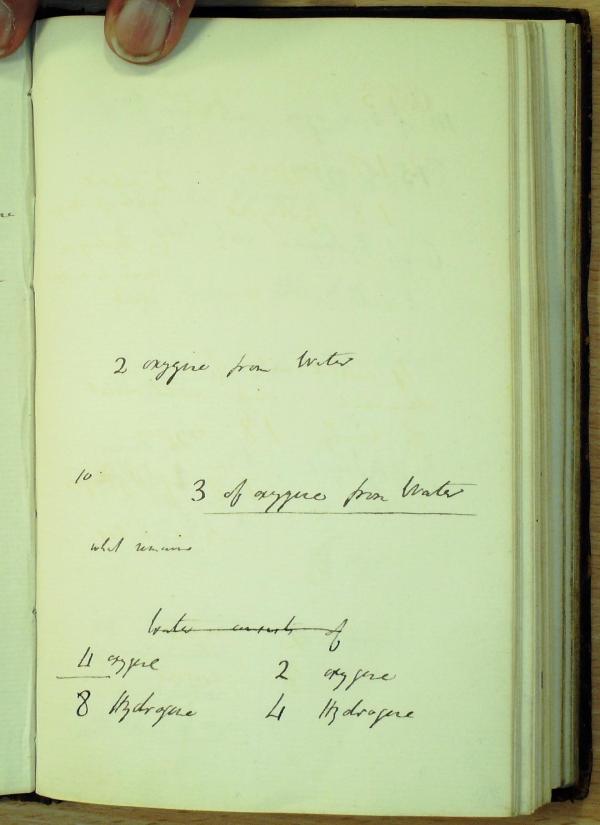 2 oxygene from Water
10
3 of oxygene from Water
what remains
Water consists of
4 oxygene 2 oxygene
8 Hydrogene 4 Hydrogene